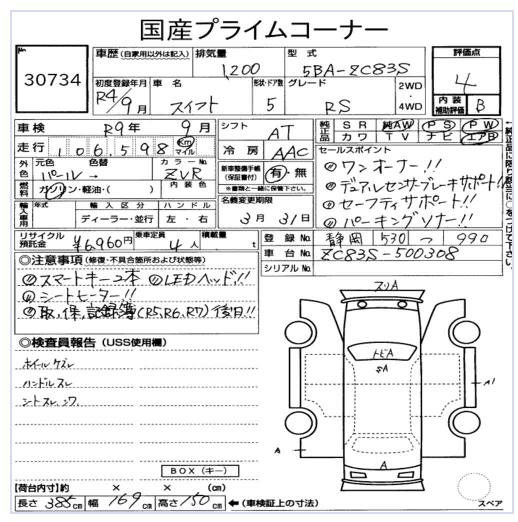 国産プライムコーナー
No 30734
車歴(自家用以外は記入) 排気量 1,200 型式 5BA-ZC83S 評価点 4
初度登録年月 R4/9月 車名 スイフト 形状・ドア数 5 グレード RS 2WD・4WD 内装補助評価 B
車検 R9年9月 シフト AT 純正品 SR 純AW PS PW カワ TV ナビ エアB
走行 106,598 Km マイル 冷房 AAC
セールスポイント
外色 元色 色替 パール→ カラーNo. ZVR 内装色
◎ワンオーナー!!
燃料 ガソリン・軽油・( )
新車整備手帳(保証書付) 有・無
※書類と一緒に保管下さい。
◎デュアルセンサーブレーキサポート!!
輸入車用 年式 輸入区分 ディーラー・並行 ハンドル 左・右
名義変更期限 3月31日
◎セーフティサポート!!
◎パーキングソナー!!
←純正品に限り該当に○をつけて下さい。
リサイクル預託金 ¥6,960円 乗車定員 4人 積載量 t
登録No. 静岡 530 つ 990
車台No. ZC83S-500308
シリアルNo.
◎注意事項(修復・不具合箇所および状態等)
◎スマートキー2本 ◎LEDヘッド!!
◎シートヒーター!!
◎取,保,記録簿(R5,R6,R7)後日!!
◎検査員報告(USS使用欄)
ホイールケズレ
ハンドルスレ
シートスレ、シワ
BOX(キー)
【荷台内寸】約 × × (cm)
長さ 385cm 幅 169cm 高さ 150cm ←(車検証上の寸法)
スリA
トビA
SA
A1
A
A
スペア